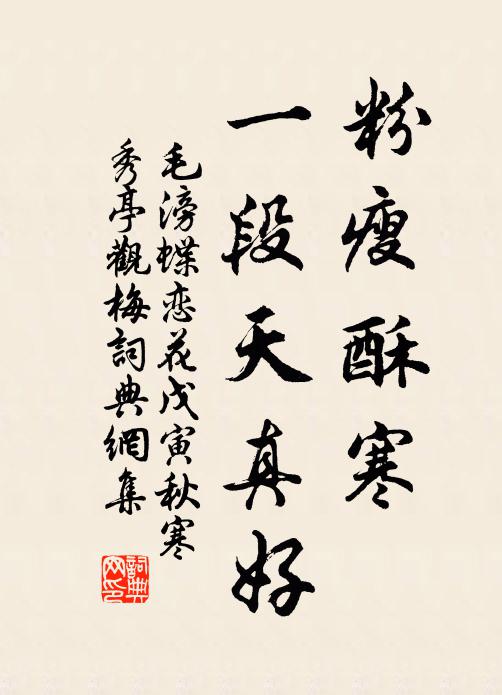 粉瘦酥寒
一段天真好
毛滂蝶恋花戊寅秋寒
秀亭觀梅詞典網集
詞典
网印